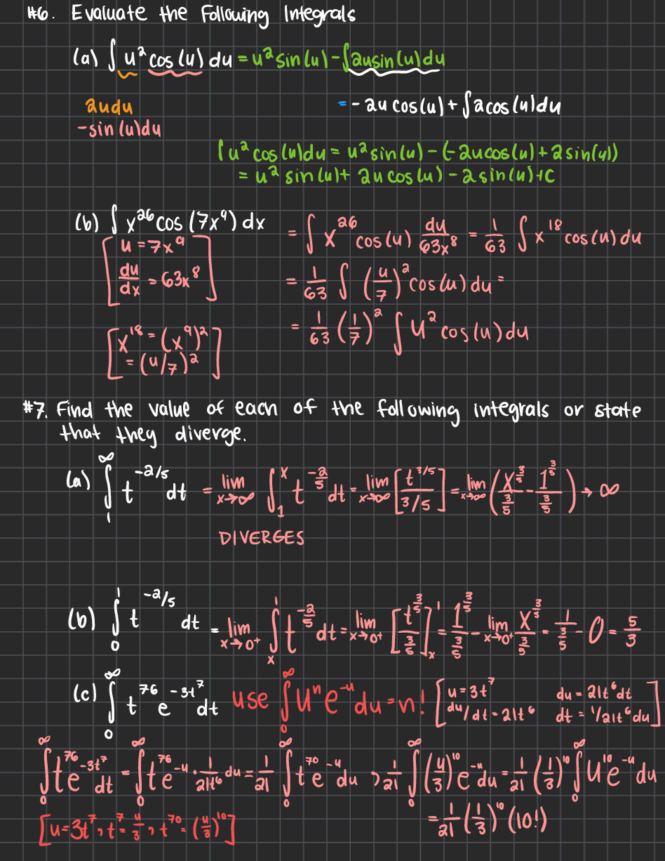 #6. Evaluate the Following Integrals
(a) ∫ u² cos(u) du = u² sin(u) - ∫2u sin(u) du
2udu
-sin(u)du
= -2u cos(u) + ∫2cos(u)du
∫u² cos(u)du = u² sin(u) - (-2u cos(u) + 2 sin(u))
= u² sin(u) + 2u cos(u) - 2 sin(u) + C
(b) ∫ x²⁶ cos(7x⁹) dx = ∫ x²⁶ cos(u) du/63x⁸ = 1/63 ∫ x¹⁸ cos(u) du
[u = 7x⁹
du/dx = 63x⁸]
= 1/63 ∫ (u/7)² cos(u) du =
[x¹⁸ = (x⁹)²
= (u/7)²]
= 1/63 (1/7)² ∫ u² cos(u) du
#7. Find the value of each of the following integrals or state
that they diverge.
(a) ∫₁^∞ t^(-2/5) dt = lim x→∞ ∫₁^x t^(-2/5) dt = lim x→∞ [t^(3/5) / 3/5] = lim x→∞ (x^(3/5) / 3/5 - 1^(3/5) / 3/5) → ∞
DIVERGES
(b) ∫₀^1 t^(-2/5) dt = lim x→0⁺ ∫ₓ^1 t^(-2/5) dt = lim x→0⁺ [t^(3/5) / 3/5]ₓ^1 = 1^(3/5) / 3/5 - lim x→0⁺ x^(3/5) / 3/5 = 1 / 3/5 - 0 = 5/3
(c) ∫₀^∞ t⁷⁶ e^(-3t⁷) dt use ∫₀^∞ uⁿ e^(-u) du = n! [u = 3t⁷ du = 21t⁶ dt
du/dt = 21t⁶ dt = 1/21t⁶ du]
∫₀^∞ t⁷⁶ e^(-3t⁷) dt = ∫₀^∞ t⁷⁶ e^(-u) · 1/21t⁶ du = 1/21 ∫₀^∞ t⁷⁰ e^(-u) du, 1/21 ∫₀^∞ (u/3)¹⁰ e^(-u) du = 1/21 (1/3)¹⁰ ∫₀^∞ u¹⁰ e^(-u) du
[u = 3t⁷, t⁷ = u/3, t⁷⁰ = (u/3)¹⁰]
= 1/21 (1/3)¹⁰ (10!)